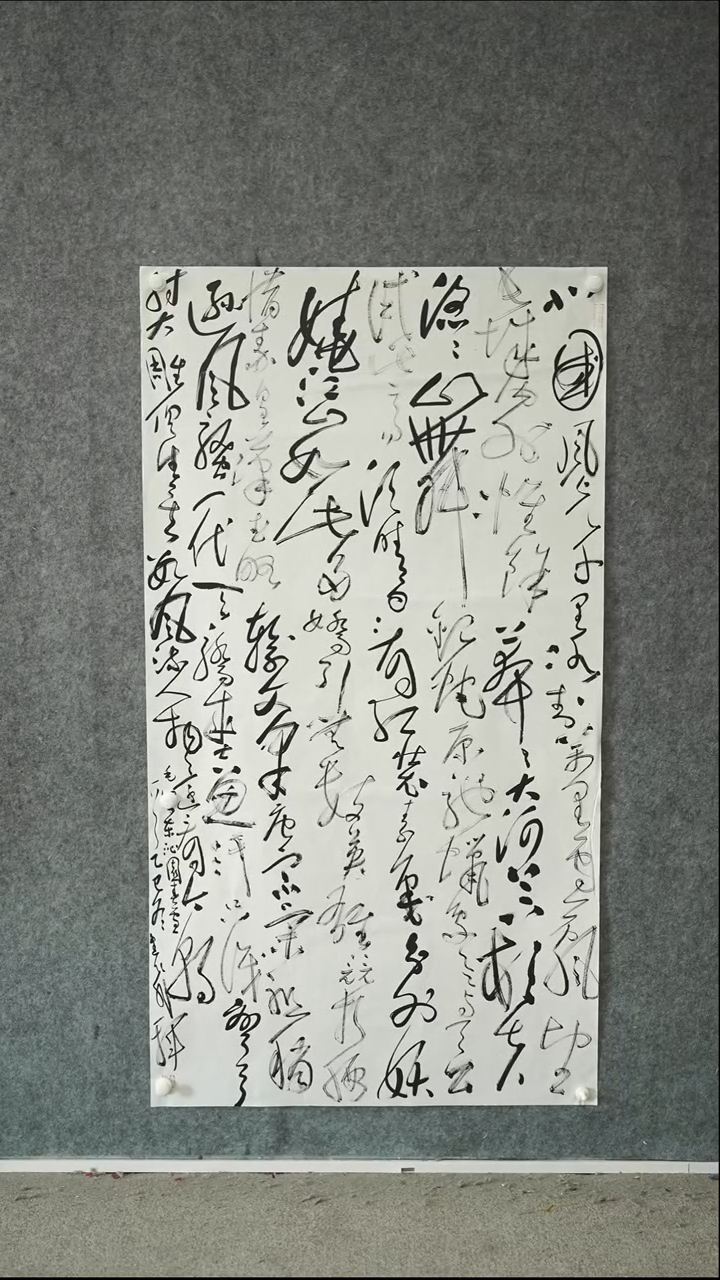 北国风光千里冰封万里雪飘望
长城内外惟馀莽莽大河上下顿失
滔滔山舞银蛇原驰蜡象欲与天公
试比高须晴日看红装素裹分外妖
娆江山如此多娇引无数英雄竞折腰
惜秦皇汉武略输文采唐宗宋祖稍
逊风骚一代天骄成吉思汗只识弯弓
射大雕俱往矣数风流人物还看今朝
沁園春雪
乙巳冬